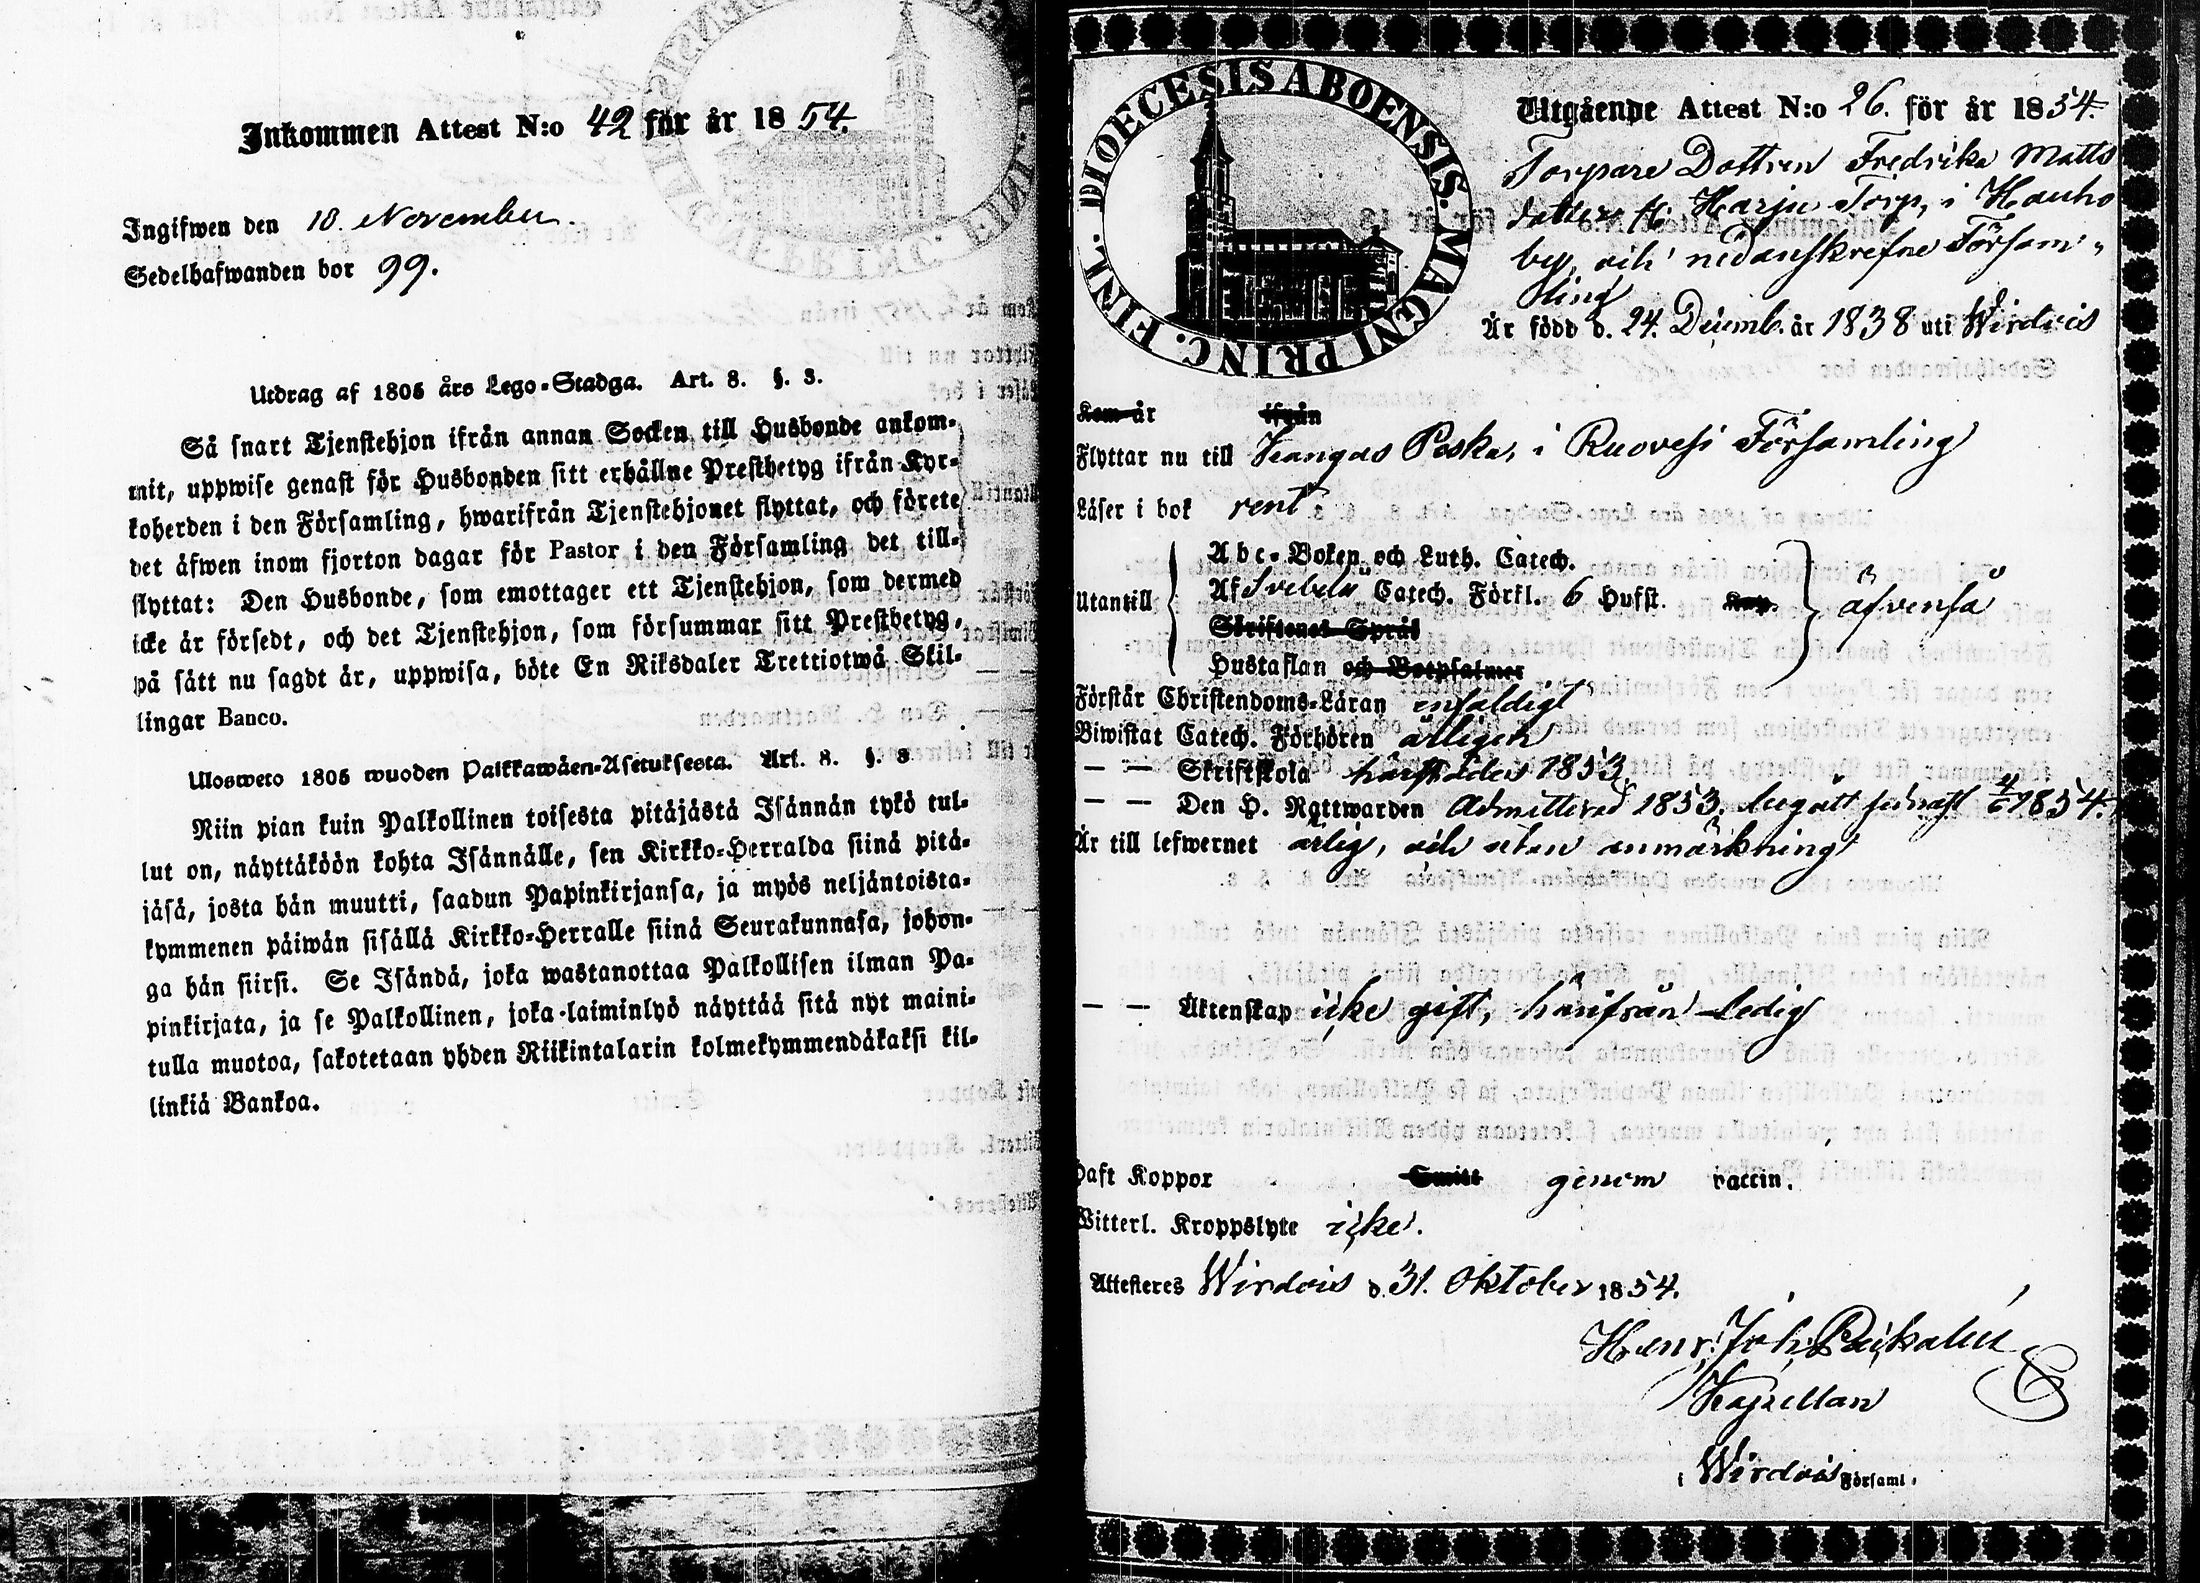 Inkommen Attest N:o 42 för år 1854.
Ingifwen den 18. November.
Sedelhafwanden bor 99.
Utdrag af 1805 års Lego-Stadga. Art. 8. §. 3.
Så snart Tjenstehjon ifrån annan Socken till Husbonde ankom-
mit, uppwise genast för Husbonden sitt erhållne Prestbetyg ifrån Kyr-
koherden i den Församling, hwarifrån Tjenstehjonet flyttat, och förete
det äfwen inom fjorton dagar för Pastor i den Församling det till-
flyttat: Den Husbonde, som emottager ett Tjenstehjon, som dermed
icke är försedt, och det Tjenstehjon, som försummar sitt Prestbetyg,
på sätt nu sagdt är, uppwisa, böte En Riksdaler Trettiotwå Skil-
lingar Banco.
Ulosweto 1805 wuoden Palkkawäen-Asetuksesta. Art. 8. §. 3
Niin pian kuin Palkollinen toisesta pitäjästä Isännän tykö tul-
lut on, näyttäköön kohta Isännälle, sen Kirkko-Herralda siinä pitä-
jäsä, josta hän muutti, saadun Papinkirjansa, ja myös neljäntoista-
kymmenen päiwän sisällä Kirkko-Herralle siinä Seurakunnasa, johon-
ga hän siirsi. Se Isändä, joka wastanottaa Palkollisen ilman Pa-
pinkirjata, ja se Palkollinen, joka laiminlyö näyttää sitä nyt maini-
tulla muotoa, sakotetaan yhden Riikintalarin kolmekymmendäkaksi kil-
linkiä Bankoa.
DIOECESIS ABOENSIS. MAGNI PRINC. FINL.
Utgående Attest N:o 26. för år 1854.
Torpare Dottren Fredrika Matts
dotter fr. Harju Torp, i Hauho
by, och nedanskrefne Försam-
ling
Är född d. 24. Decemb. år 1838 uti Wirdois
Kom år ifrån
Flyttar nu till Kangas Poska, i Ruovesi Församling
Läser i bok rent
Abc-Boken och Luth. Catech.
Utantill Af Svebelii Catech. Förkl. 6 Hufst. Kap. äfvenså
Skriftenes Språk
Hustaflan och Botpsalmer
Förstår Christendoms-Läran enfaldigt
Biwistat Catech. Förhören årligen
— — Skriftskola härstädes 1853.
— — Den H. Nattwarden Admitterad 1853. begått senast 4/6 1854.
Är till lefwernet ärlig, och utan anmärkning
— — Äktenskap icke gift, härifrån ledig
Haft Koppor Smitt genom vaccin.
Witterl. Kroppslyte icke.
Attesteres Wirdois d. 31. Oktober 1854.
Henr: Joh:
Kapellan
i Wirdois Församl.